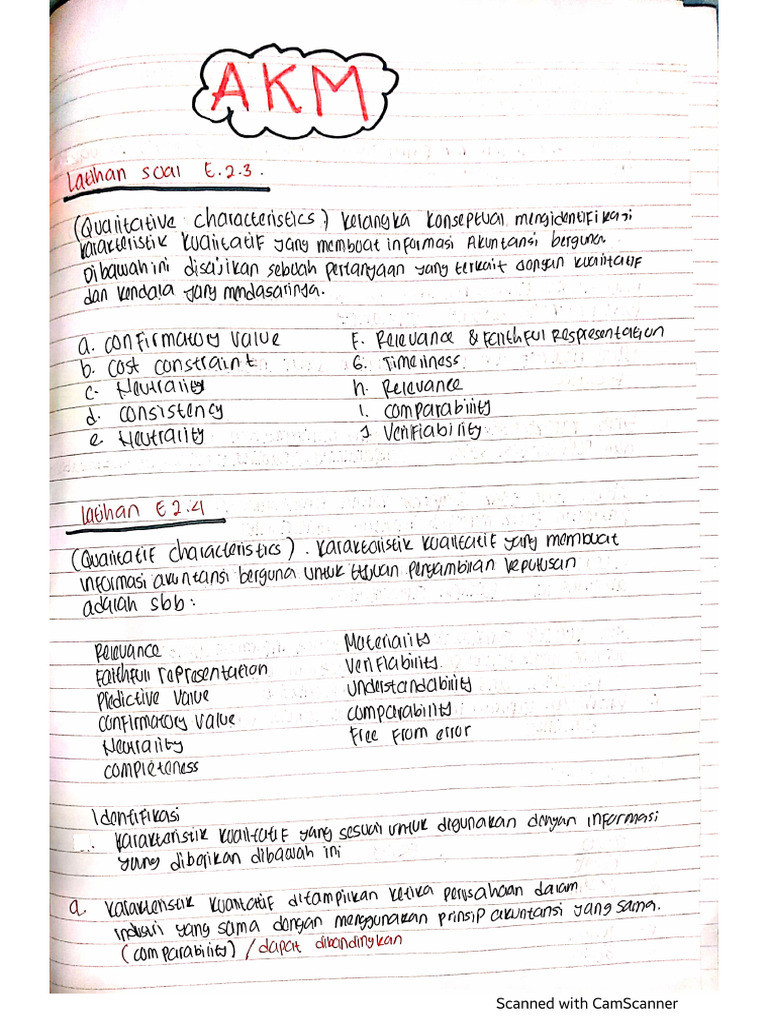 AKM
Latihan soal E.2.3.
(Qualitative characteristics) kerangka konseptual mengidentifikasi
karakteristik kualitatif yang membuat informasi Akuntansi berguna.
Dibawah ini disajikan sebuah pertanyaan yang terkait dengan kualitatif
dan kendala yang mendasarinya.
a. confirmatory value
b. cost constraint
c. Neutrality
d. consistency
e. Neutrality
F. Relevance & Faithful Respresentation
G. Timeliness
h. Relevance
i. comparability
J. Verifiability
Latihan E 2.4
(Qualitatif characteristics). karakteristik kualitatif yang membuat
informasi akuntansi berguna untuk tujuan pengambilan keputusan
adalah sbb:
Relevance
Faithfull representation
Predictive value
confirmatory value
Neutrality
completeness
Materiality
Verifiability
understandability
comparability
Free From error
Identifikasi
karakteristik kualitatif yang sesuai untuk digunakan dengan informasi
yang diberikan dibawah ini
a. karakteristik kualitatif ditampilkan ketika perusahaan dalam
industri yang sama dengan menggunakan prinsip akuntansi yang sama.
(comparability) / dapat dibandingkan
Scanned with CamScanner